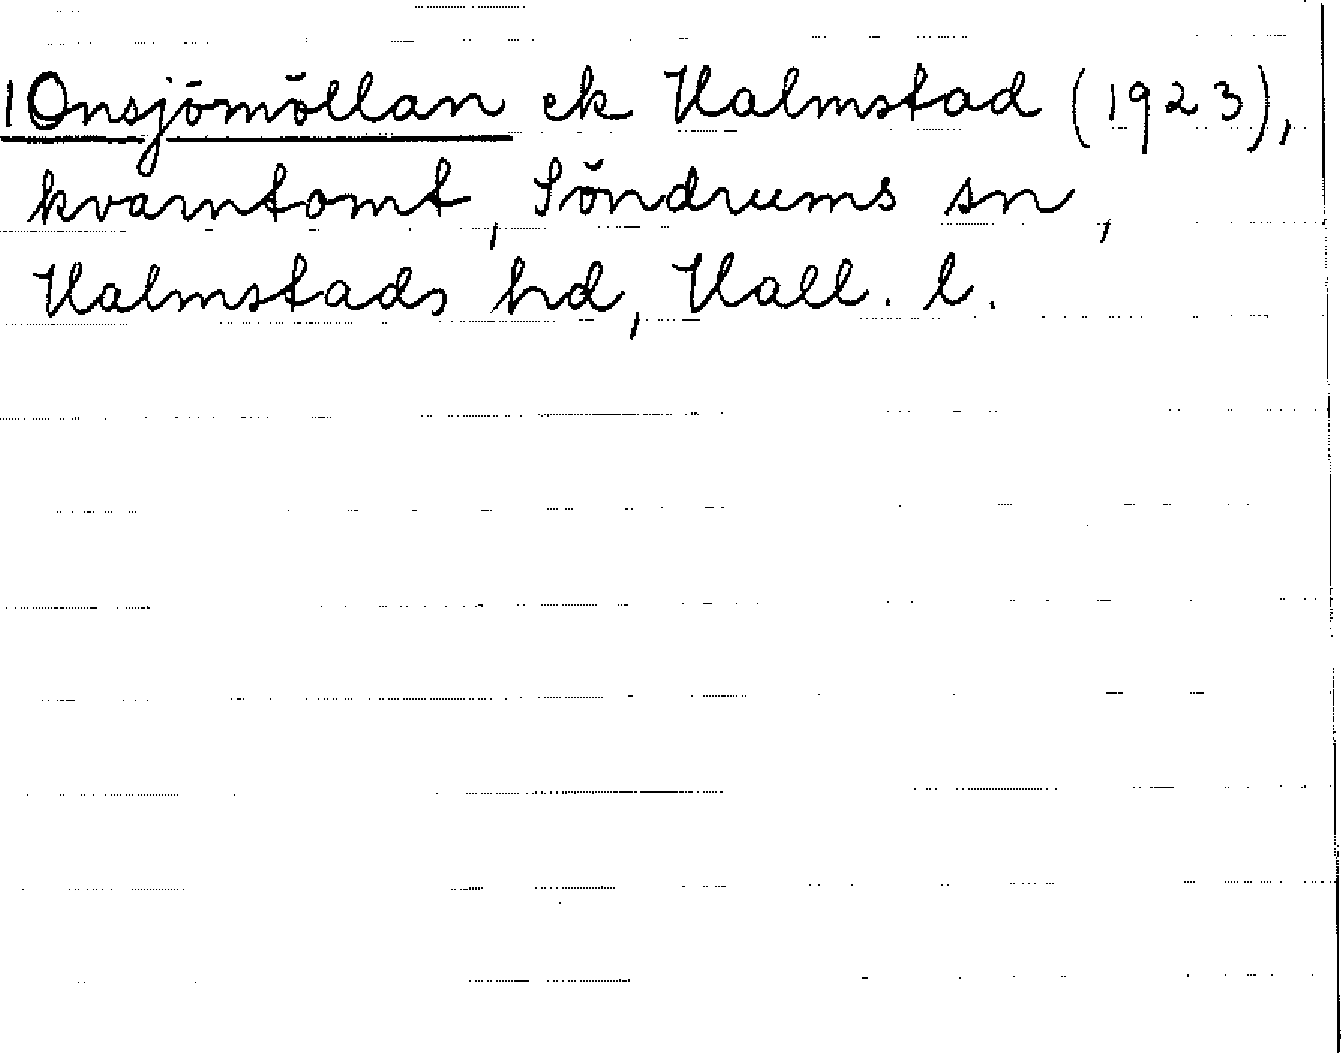 1 Onsjömöllan ek Halmstad (1923),
kvarntomt, Söndrums sn,
Halmstads hd, Hall. l.